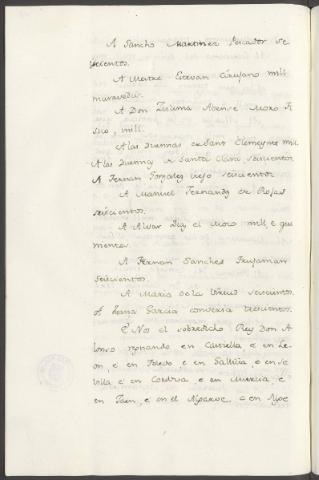 A Sancho Martinez Pescador se
iscientos.
A Maestre Estevan Cirujano mill
maravedis.
A Don Zulema Abense Moro Fi
sico, mill.
A las Duennas de Sant Clemeynt mil
A las Duennas de Santa Clara seiscientos
A Ferran Gonzalez viejo seiscientos
A Manuel Fernandez de Rojas
seiscientos.
A Alvar Diaz el Moro mill, e qui
nientos.
A Fernan Sanches Trujaman
seiscientos.
A Maria de la seiscientos.
A Garcia conversa trecientos.
E Nos el sobredicho Rey Don A
lonso regnando en Castiella e en Le
on, e en Toledo e en Gallizia, e en Se
villa, e en Cordova, e en Murcia, e
en Jaen, e en el Algarve, e en Alge